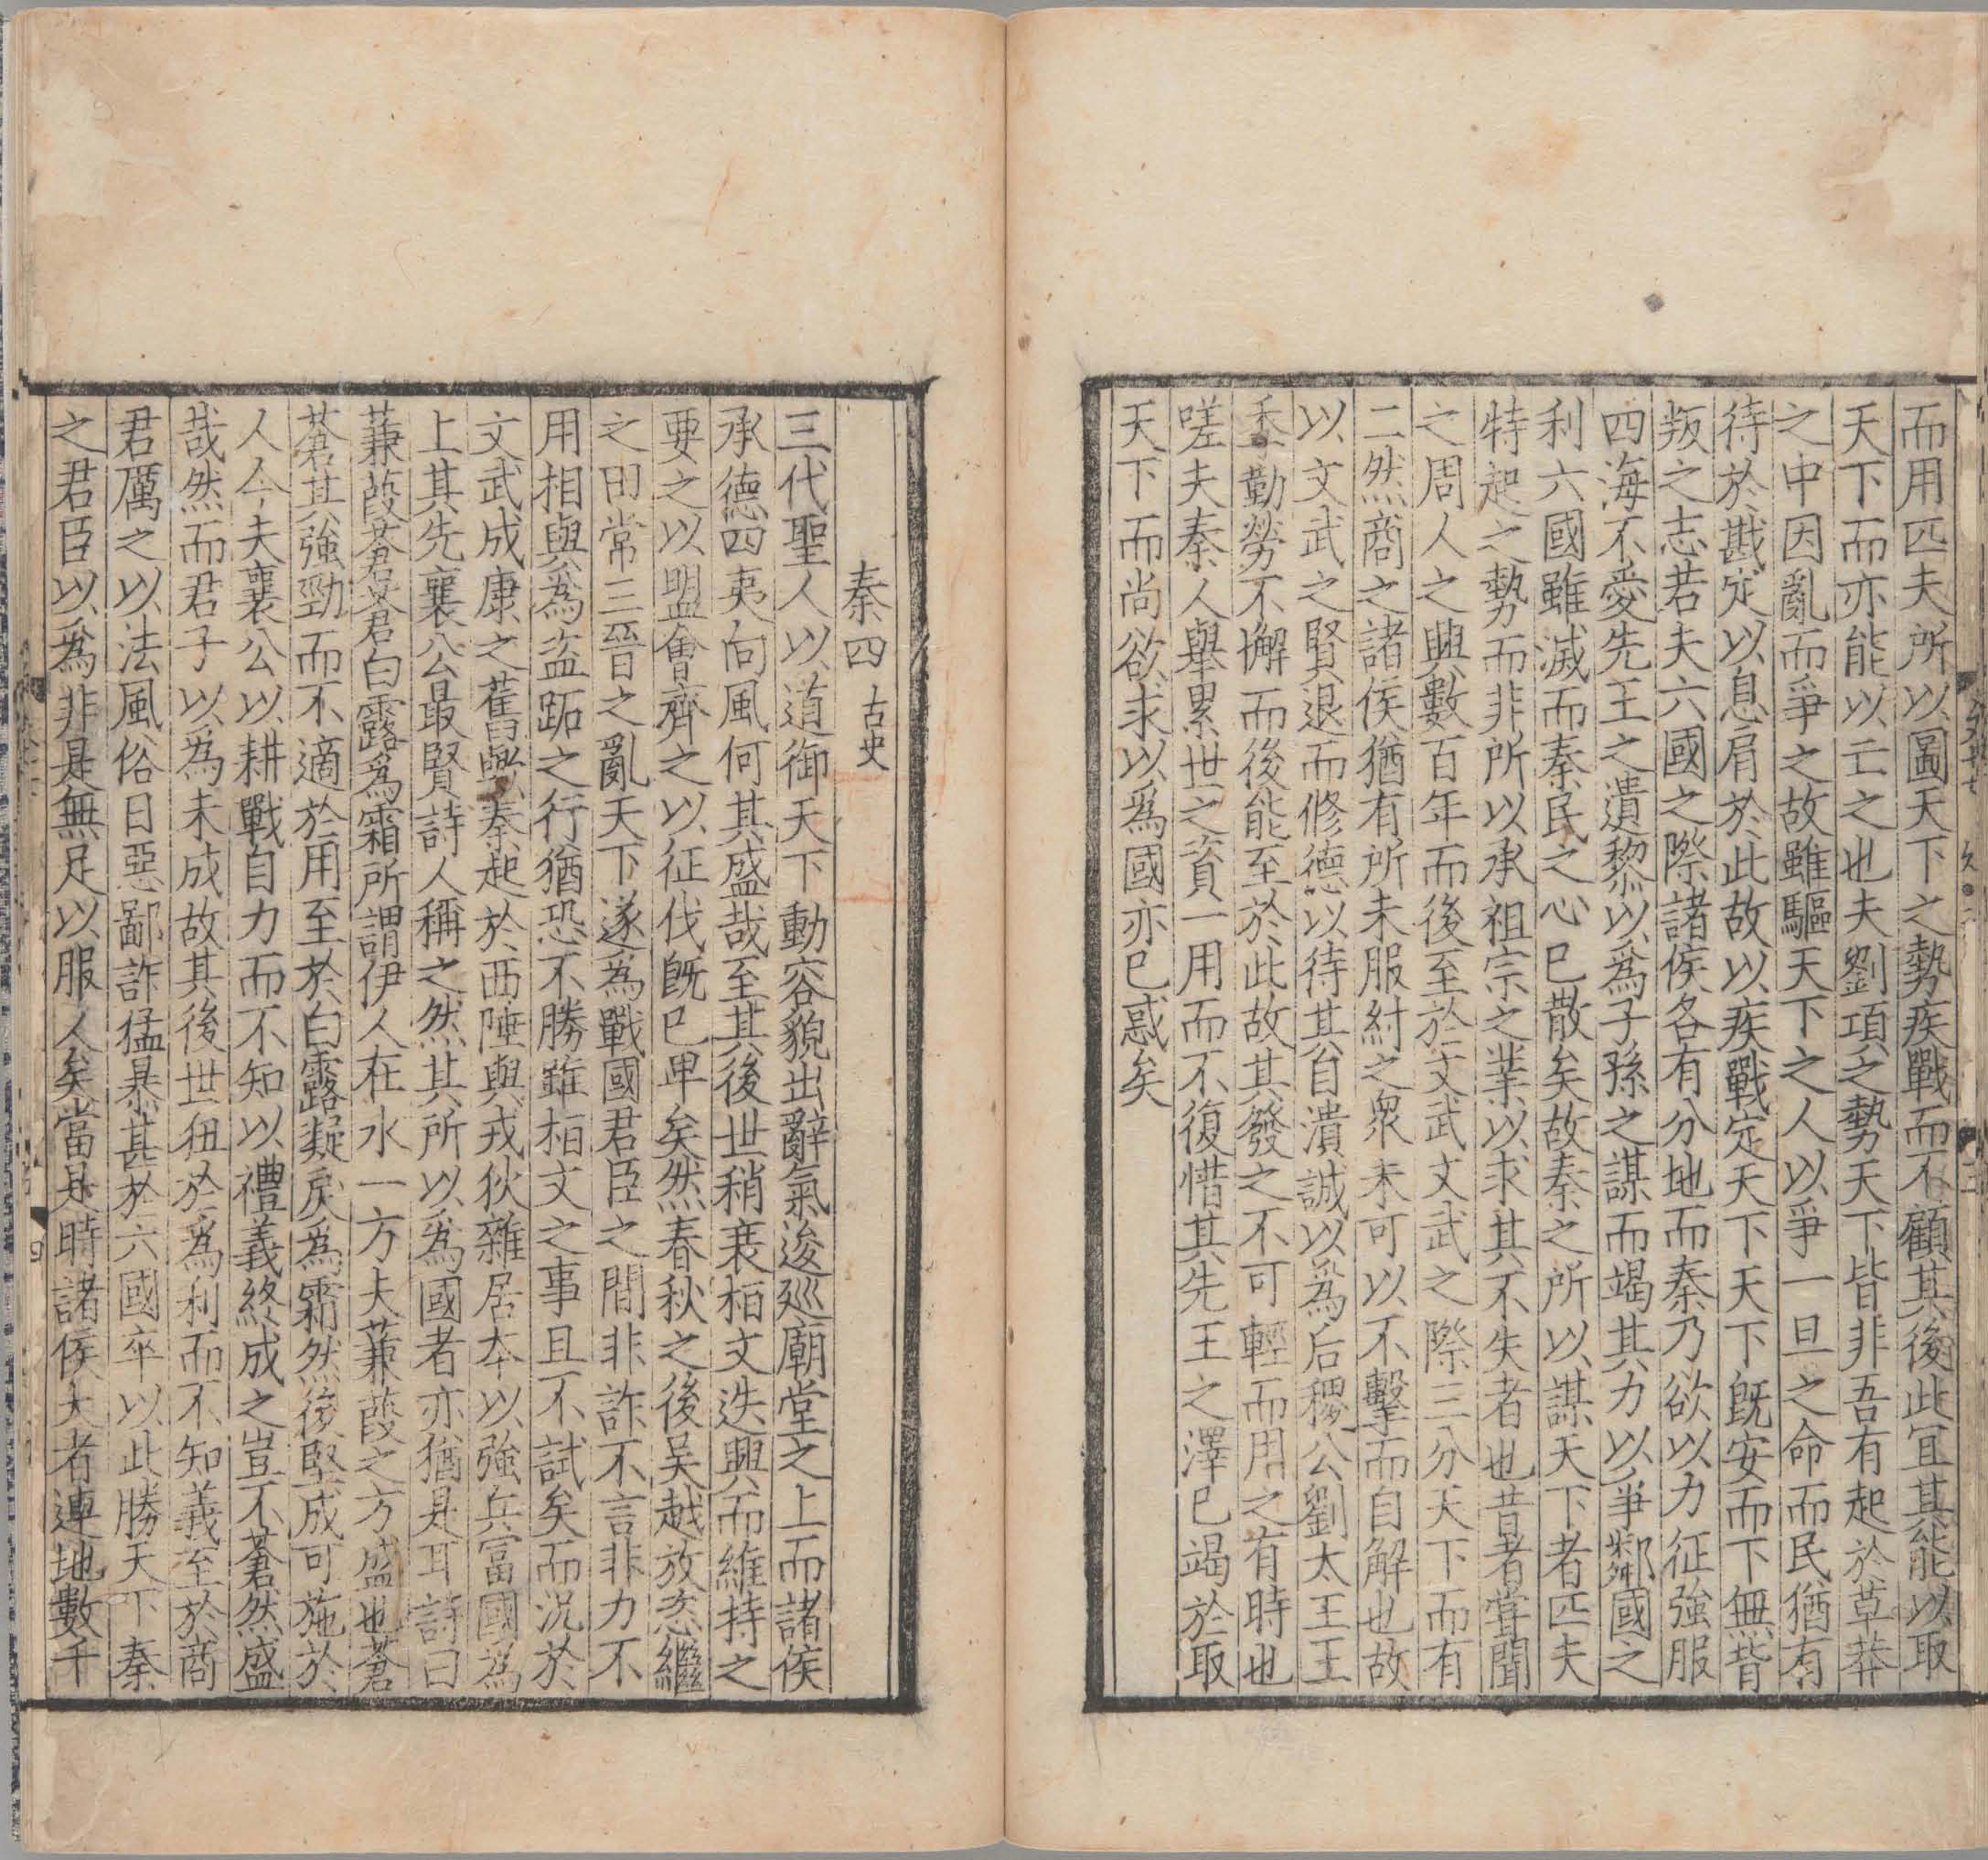 而用匹夫所以圖天下之勢疾戰而不顧其後此冝其能以取
天下而亦能以亡之也夫劉項之勢天下皆非吾有起於草莽
之中因亂而爭之故雖驅天下之人以爭一旦之命而民猶有
待於戡定以息肩於此故以疾戰定天下天下旣安而下無背
叛之志若夫六國之際諸侯各有分地而秦乃欲以力征強服
四海不愛先王之遺黎以爲子孫之謀而竭其力以爭鄰國之
利六國雖滅而秦民之心已散矣故秦之所以謀天下者匹夫
特起之勢而非所以承祖宗之業以求其不失者也昔者甞聞
之周人之興數百年而後至於文武文武之際三分天下而有
二然商之諸侯猶有所未服紂之衆未可以不擊而自解也故
以文武之賢退而修德以待其自潰誠以爲后稷公劉太王王
季勤勞不懈而後能至於此故其發之不可輕而用之有時也
嗟夫秦人舉累世之資一用而不復惜其先王之澤已竭於取
天下而尚欲求以爲國亦已惑矣
秦四 古史
三代聖人以道御天下動容貌出辭氣逡廵廟堂之上而諸侯
承德四夷向風何其盛哉至其後世稍衰栢文迭興而維持之
要之以盟會齊之以征伐旣已卑矣然春秋之後吴越放恣繼
之田常三晉之亂天下遂爲戰國君臣之間非詐不言非力不
用相與爲盜跖之行猶恐不勝雖栢文之事且不試矣而况於
文武成康之舊歟秦起於西陲與戎狄雜居本以強兵富國爲
上其先襄公最賢詩人稱之然其所以爲國者亦猶是耳詩曰
蒹葭蒼蒼白露爲霜所謂伊人在水一方夫蒹葭之方盛也蒼
蒼其強勁而不適於用至於白露凝戾爲霜然後堅成可施於
人今夫襄公以耕戰自力而不知以禮義終成之豈不蒼然盛
哉然而君子以爲未成故其後世狃於爲利而不知義至於商
君厲之以法風俗日惡鄙詐猛暴甚於六國卒以此勝天下秦
之君臣以爲非是無足以服人矣當是時諸侯大者連地數千